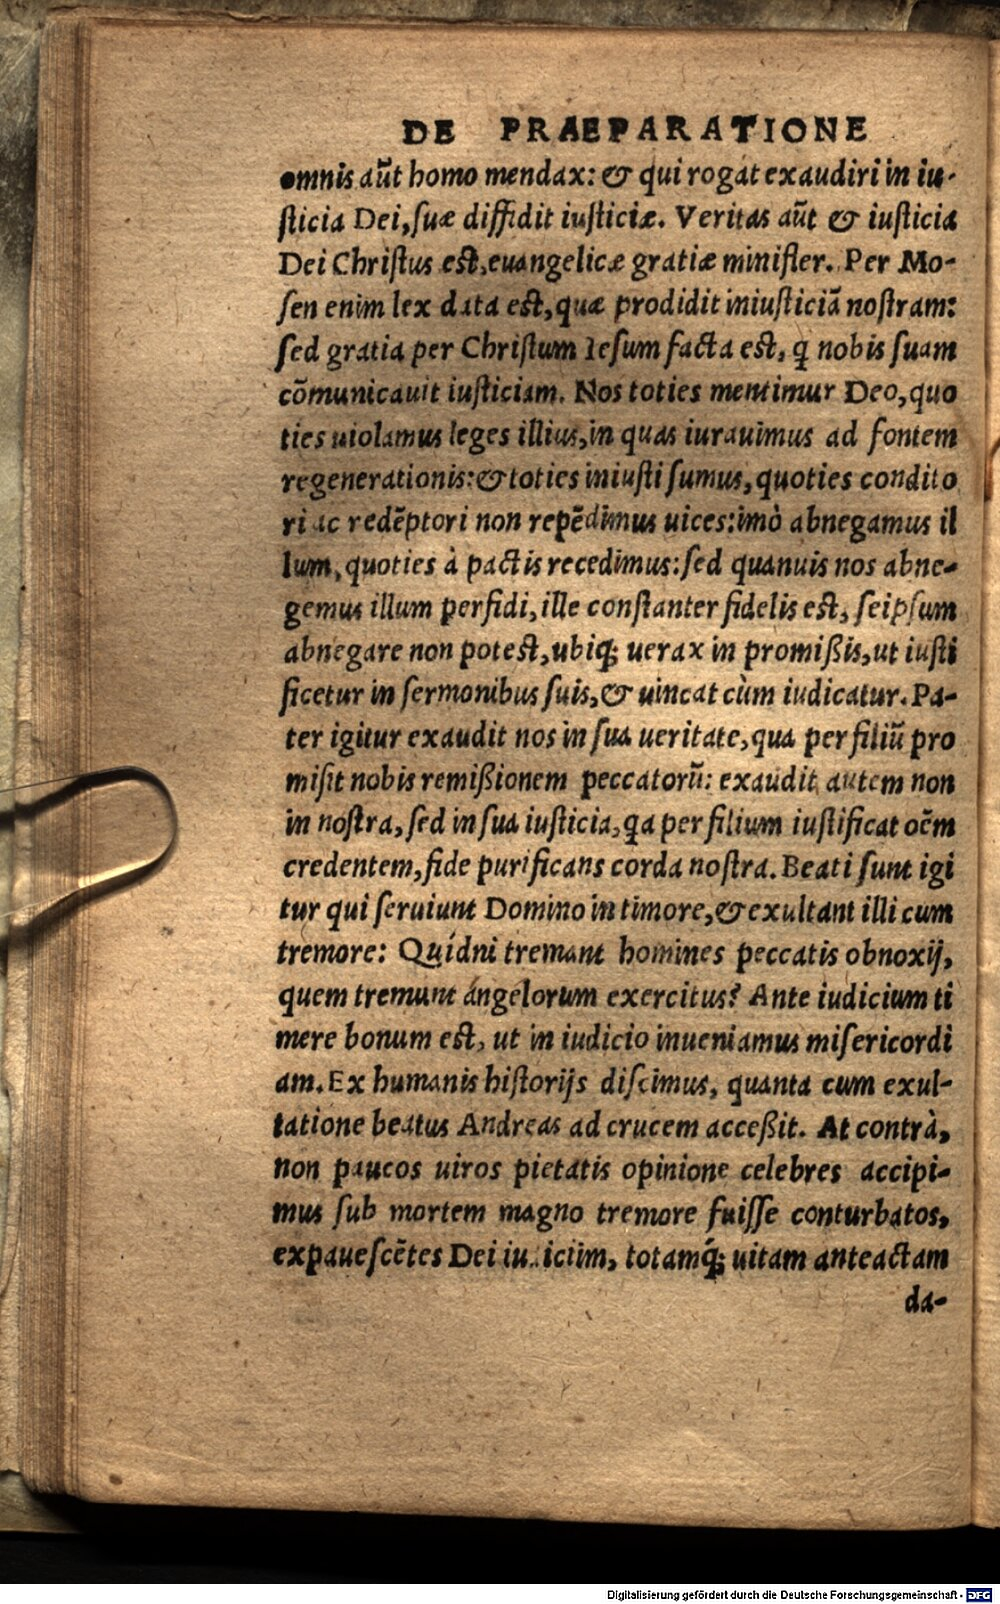 DE PRAEPARATIONE
omnis aũt homo mendax: & qui rogat exaudiri in iu-
sticia Dei, suæ diffidit iusticiæ. Veritas aũt & iusticia
Dei Christus est, euangelicæ gratiæ minister. Per Mo-
sen enim lex data est, quæ prodidit iniusticiã nostram:
sed gratia per Christum Iesum facta est, q̃ nobis suam
cõmunicauit iusticiam. Nos toties mentimur Deo, quo
ties uiolamus leges illius, in quas iurauimus ad fontem
regenerationis: & toties iniusti sumus, quoties condito
ri ac redẽptori non repẽdimus uices: imò abnegamus il
lum, quoties à pactis recedimus: sed quanuis nos abne-
gemus illum perfidi, ille constanter fidelis est, seipsum
abnegare non potest, ubiq; uerax in promißis, ut iusti
ficetur in sermonibus suis, & uincat cùm iudicatur. Pa-
ter igitur exaudit nos in sua ueritate, qua per filiũ pro
misit nobis remißionem peccatorũ: exaudit autem non
in nostra, sed in sua iusticia, qa per filium iustificat oẽm
credentem, fide purificans corda nostra. Beati sunt igi
tur qui seruiunt Domino in timore, & exultant illi cum
tremore: Quídni tremant homines peccatis obnoxij,
quem tremunt angelorum exercitus? Ante iudicium ti
mere bonum est, ut in iudicio inueniamus misericordi
am. Ex humanis historijs discimus, quanta cum exul-
tatione beatus Andreas ad crucem acceßit. At contrà,
non paucos uiros pietatis opinione celebres accipi-
mus sub mortem magno tremore fuisse conturbatos,
expauescẽtes Dei iudicium, totamq́; uitam anteactam
da-
Digitalisierung gefördert durch die Deutsche Forschungsgemeinschaft - DFG